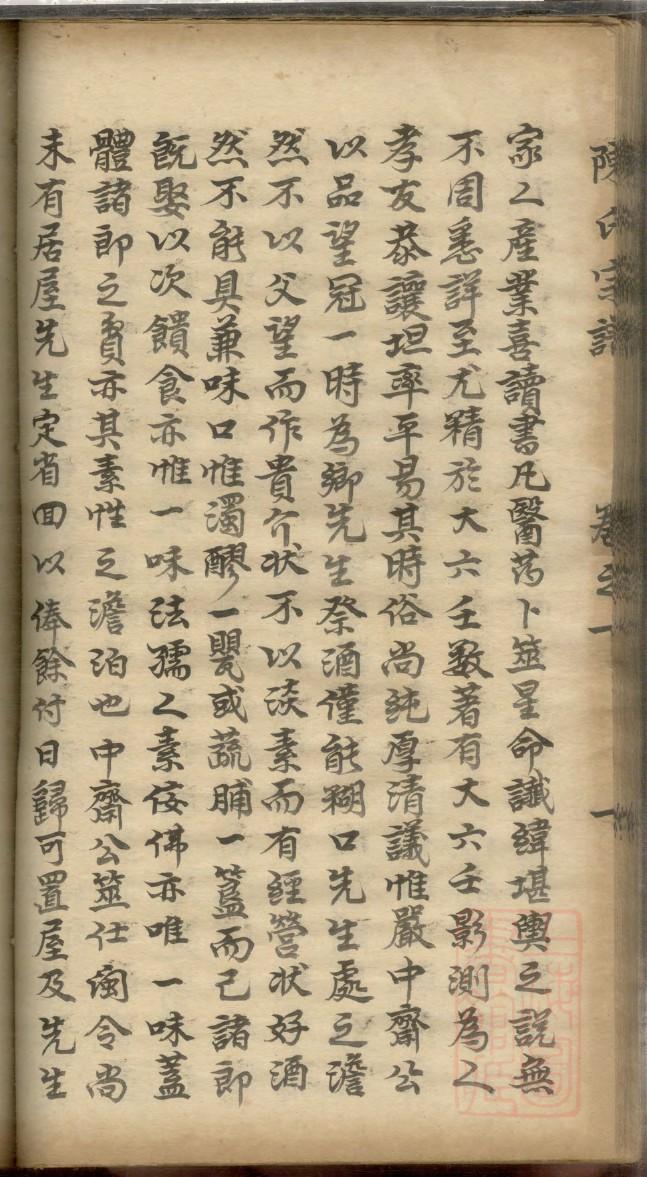 陳氏宗譜 卷之一 一
家人產業喜讀書凡醫药卜筮星命讖緯堪輿之説無
不周悉詳至尤精於大六壬數著有大六壬影測為人
孝友恭讓坦率平易其時俗尚純厚清議惟嚴中齋公
以品望冠一時為鄉先生祭酒僅能糊口先生處之澹
然不以父望而作貴介状不以淡素而有經營状好酒
然不能具兼味口惟濁醪一甖或蔬脯一簋而已諸郎
既娶以次饋食亦惟一味法孺人素佞佛亦唯一味蓋
體諸郎之貧亦其素性之澹泊也中齋公筮仕閩令尚
未有居屋先生定省回以俸餘付曰歸可置屋及先生